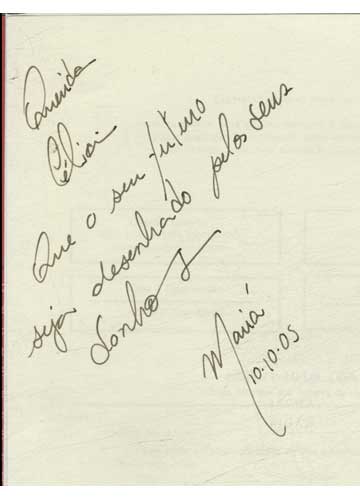 Querida
Célia
Que o seu futuro
seja desenhado pelos seus
sonhos
10.10.05